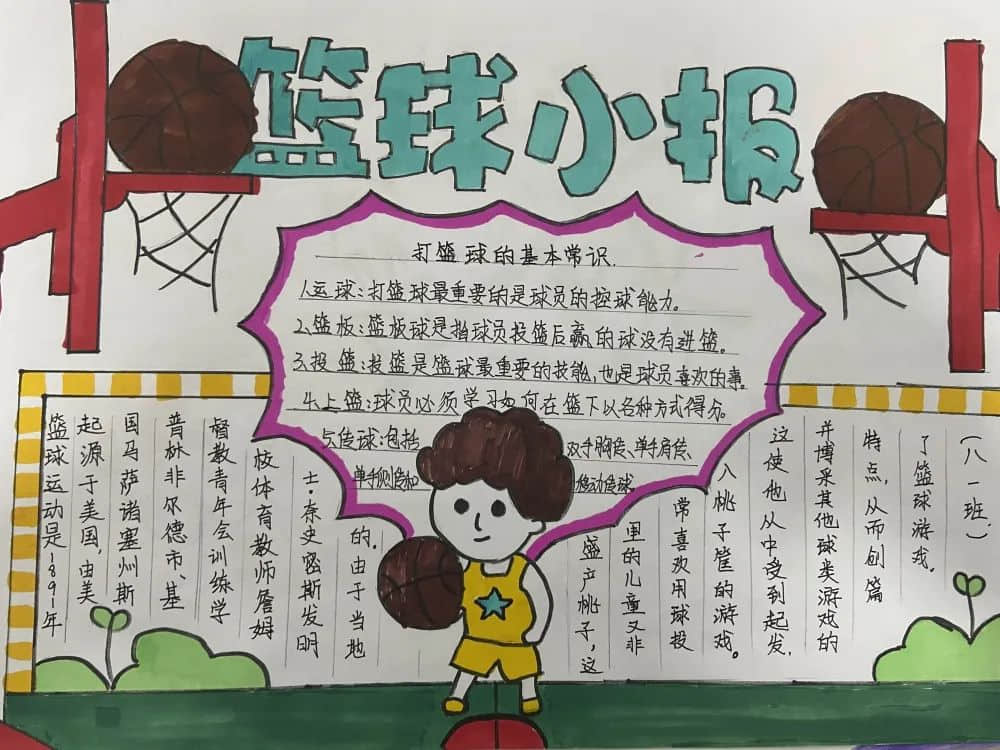 篮球小报
打篮球的基本常识.
1.运球:打篮球最重要的是球员的控球能力。
2.篮板:篮板球是指球员投篮后赢的球没有进篮。
3.投篮:投篮是篮球最重要的技能,也是球员喜欢的事。
4.上篮:球员必须学习如何在篮下以各种方式得分。
5.传球:包括双手胸传、单手肩传、
单手侧传和移动传球。
篮球运动是1891年
起源于美国,由美
国马萨诸塞州斯
普林非尔德市、基
督教青年会训练学
校体育教师詹姆
士·奈史密斯发明
的.由于当地
盛产桃子,这
里的儿童又非
常喜欢用球投
入桃子筐的游戏。
这使他从中受到起发,
并博采其他球类游戏的
特点,从而创篇
了篮球游戏.
(八一班:)